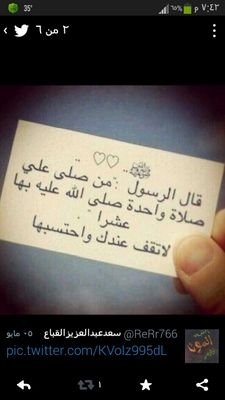 35°
٦٥%
٧:٤٢ م
٢ من ٦
ﷺ .. ♡♡
قال الرسول : "من صلى علي
صلاة واحدة صلى الله عليه بها
عشرا"
لاتقف عندك واحتسبها
سعدبدالعزيزالقباع @ReRr766
٠٥ مايو
pic.twitter.com/KVolz995dL
١